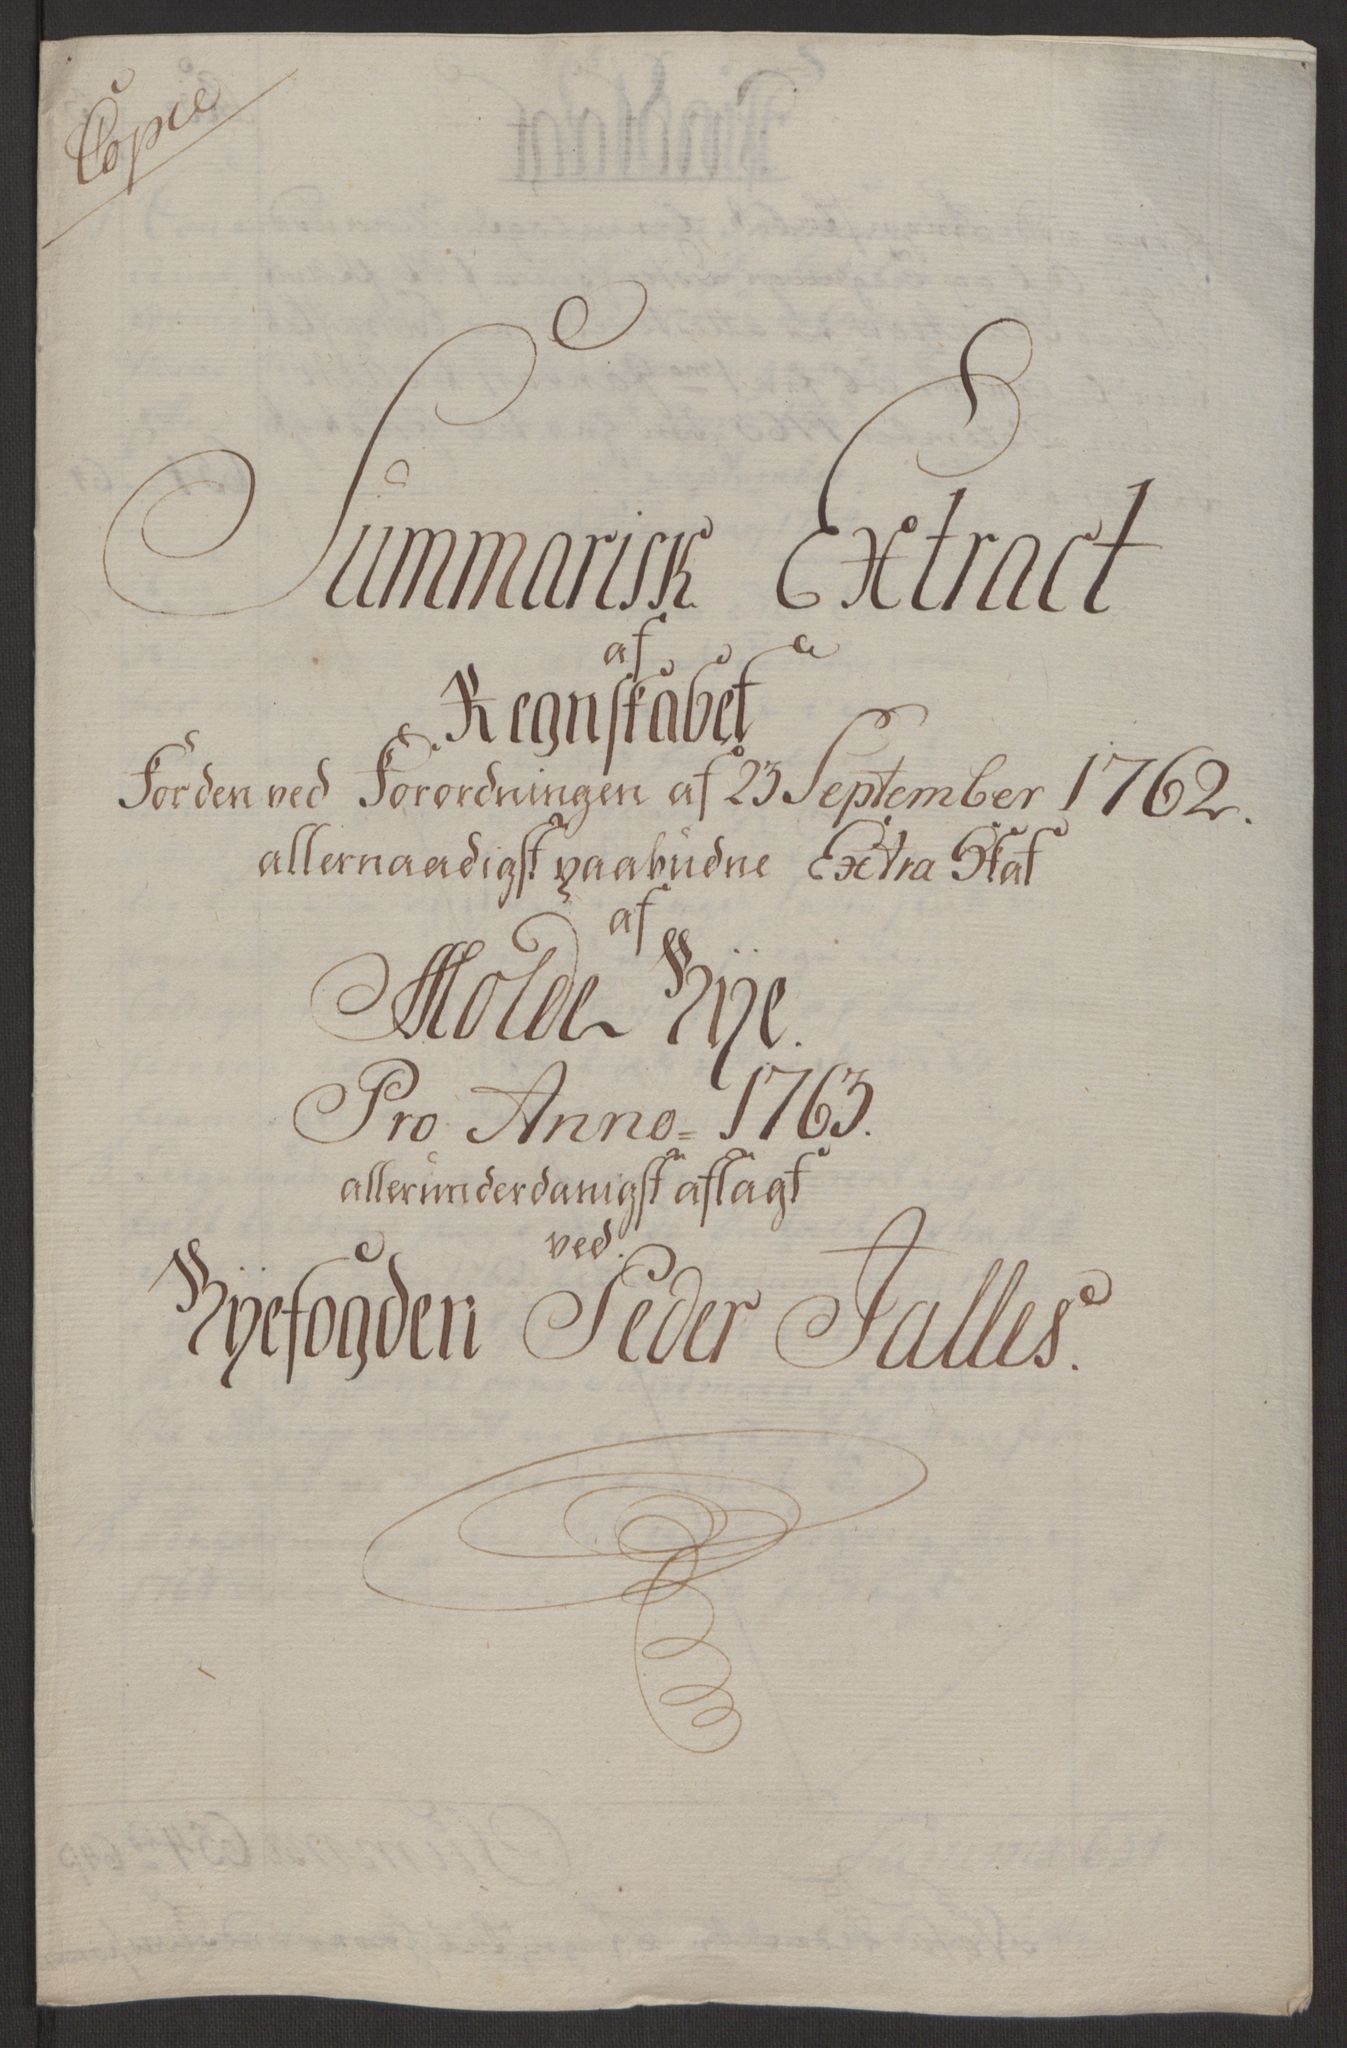 Copie
Summarisk Extract
af
Regnskabet
For den ved Forordningen af 23 September 1762.
allernaadigst paabudne Extra Skat
af
Molde Bÿe.
Pro Anno 1763.
allerunderdanigst aflagt
ved
Bÿefogden Peder Dalles.